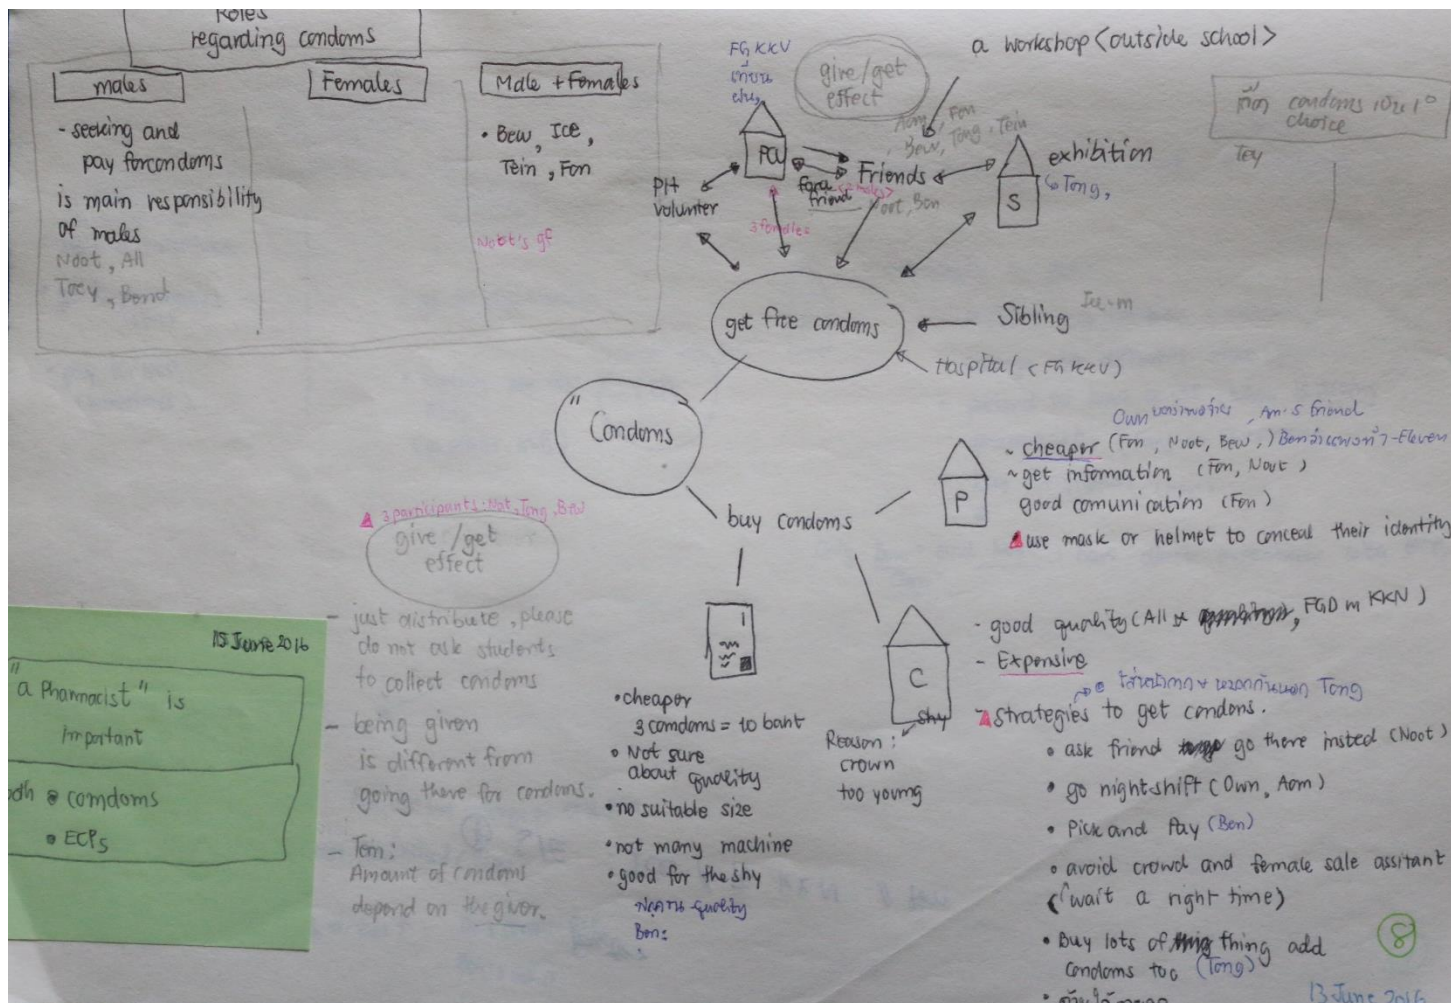 Roles
regarding condoms
males
Females
Male + females
- seeking and
pay for condoms
is main responsibility
of males
Noot, All
Toey, Bond
• Bew, Ice,
Tein, Fon
Noot's gf
FG KKV
give/get
effect
a workshop <outside school>
Aom, Fon
Bew, Tong, Tein
condoms เป็น 1°
choice
Tey
PCU
Friends
friend
Noot, Ben
PH
volunter
3 females
S
exhibition
↳ Tong,
get free condoms
Sibling
Ice-m
Hospital <FG KKV>
"Condoms
buy condoms
P
Own
, Am's friend
~ cheaper (Fon, Noot, Bew,)
7-Eleven
~ get information (Fon, Noot)
good comunication (Fon)
use mask or helmet to conceal their identity
3 participants: Not, Tong, Bew
give/get
effect
- just distribute, please
do not ask students
to collect condoms
- being given
is different from
going there for condoms.
- Tom:
Amount of condoms
depend on the giver.
15 June 2016
"a Pharmacist" is
important
comdoms
• ECPs
• cheaper
3 comdoms = 10 baht
• Not sure
about quality
• no suitable size
• not many machine
• good for the shy
quality
Ben:
C
shy
Reason:
crown
too young
- good quality (All
, FGD m KKN)
- Expensive
Tong
- strategies to get condoms.
• ask friend go there insted (Noot)
• go night shift (Own, Aom)
• Pick and Pay (Ben)
• avoid crowd and female sale assitant
(wait a right time)
• Buy lots of thing add
condoms too (Tong)
8
13 June 2016